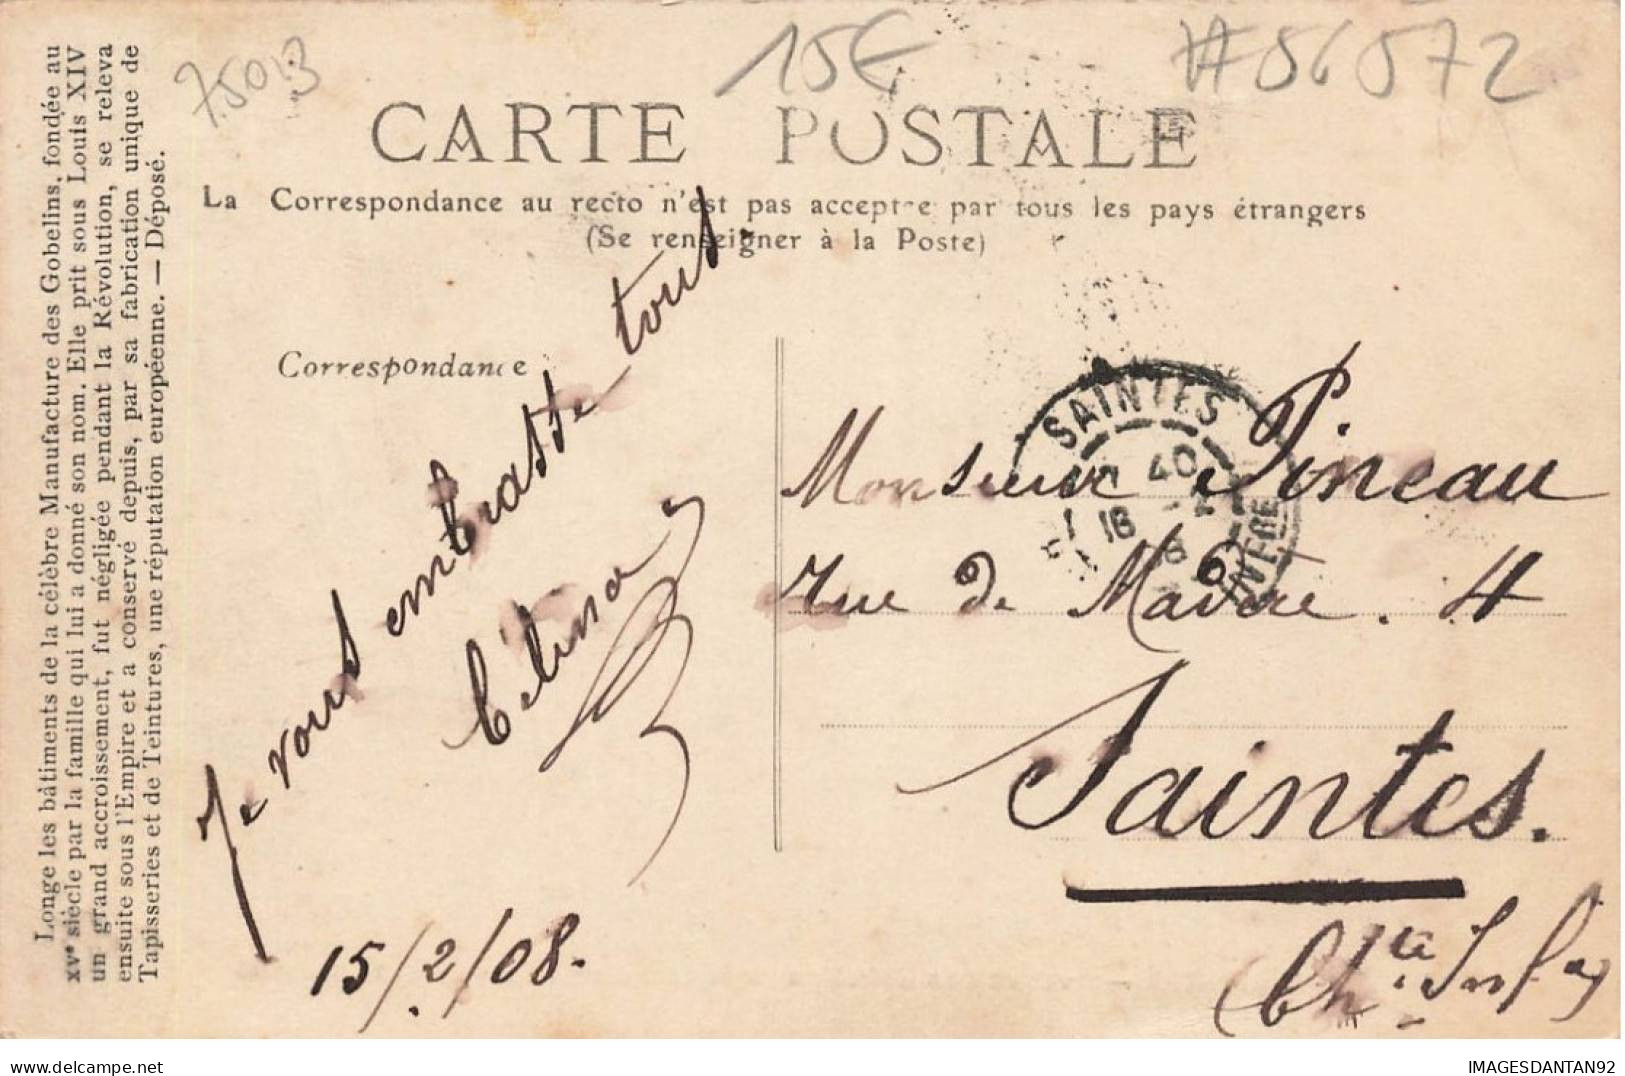 75013
15€
#56572
CARTE POSTALE
La Correspondance au recto n'est pas acceptée par tous les pays étrangers
(Se renseigner à la Poste)
Longe les bâtiments de la célèbre Manufacture des Gobelins, fondée au
XVe siècle par la famille qui lui a donné son nom. Elle prit sous Louis XIV
un grand accroissement, fut négligée pendant la Révolution, se releva
ensuite sous l'Empire et a conservé depuis, par sa fabrication unique de
Tapisseries et de Teintures, une réputation européenne. — Déposé.
Correspondance
Je vous embrasse tous.
Célina
15/2/08.
SAINTES
40
16
Monsieur Pineau
rue de
4
Saintes.
Chte Infre
IMAGESDANTAN92